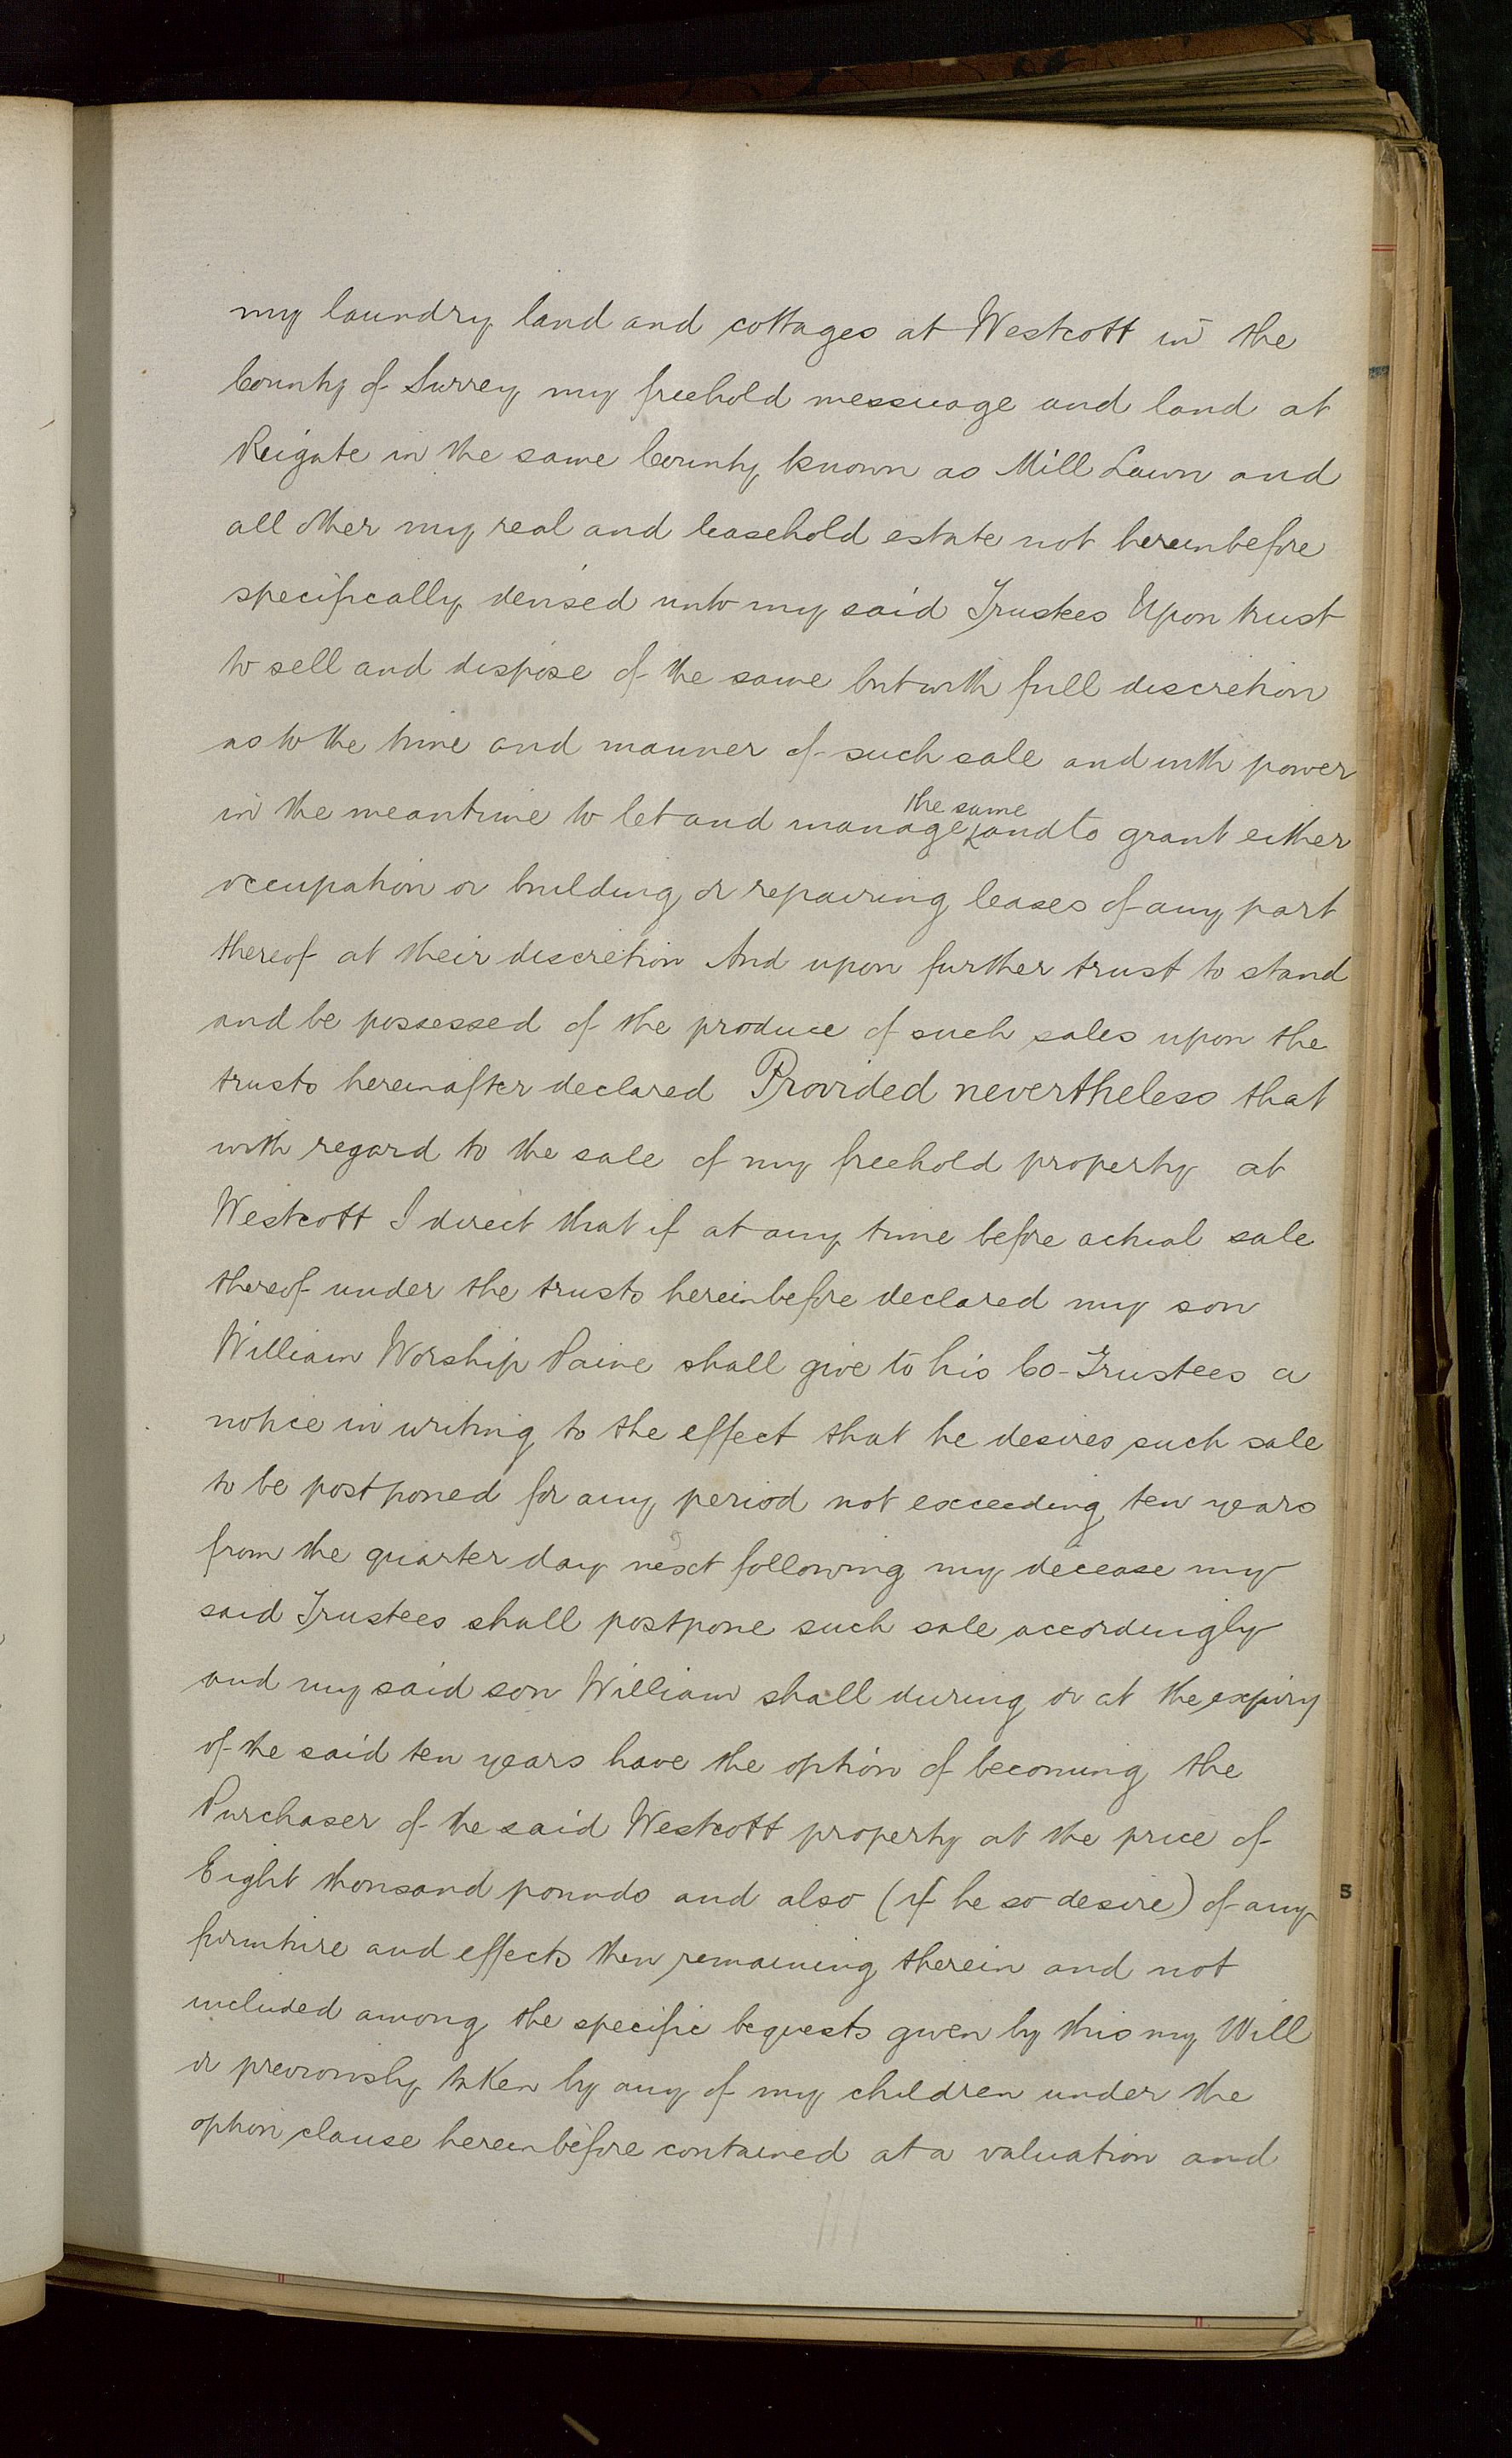 my laundry land and cottages at Westcott in the
County of Surrey my freehold messuage and land at
Reigate in the same County known as Mill Lawn and
all other my real and leasehold estate not hereinbefore
specifically devised unto my said Trustees Upon trust
to sell and dispose of the same but with full discretion
as to the time and manner of such sale and with power
in the meantime to let and manage the same and to grant either
occupation or building or repairing leases of any part
thereof at their discretion And upon further trust to stand
and be possessed of the produce of such sales upon the
trusts hereinafter declared Provided nevertheless that
with regard to the sale of my freehold property at
Westcott I direct that if at any time before actual sale
thereof under the trusts hereinbefore declared my son
William Worship Paine shall give to his Co-Trustees a
notice in writing to the effect that he desires such sale
to be postponed for any period not exceeding ten years
from the quarter day next following my decease my
said Trustees shall postpone such sale accordingly
and my said son William shall during or at the expiry
of the said ten years have the option of becoming the
Purchaser of the said Westcott property at the price of
Eight thousand pounds and also (if he so desire) of any
furniture and effects then remaining therein and not
included among the specific bequests given by this my Will
or previously taken by any of my children under the
option clause hereinbefore contained at a valuation and
S